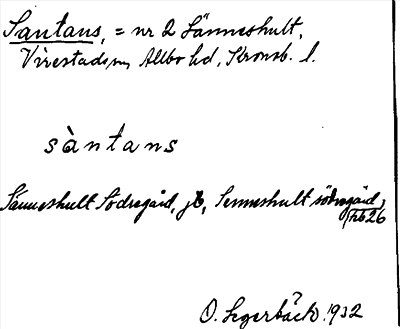 Santans, = nr 2 Sänneshult,
Virestads sn, Allbo hd, Kronob. l.
sàntans
Sänneshult Södregård, jb, Senneshult södregård,
hb 26
O. Segerbäck. 1932